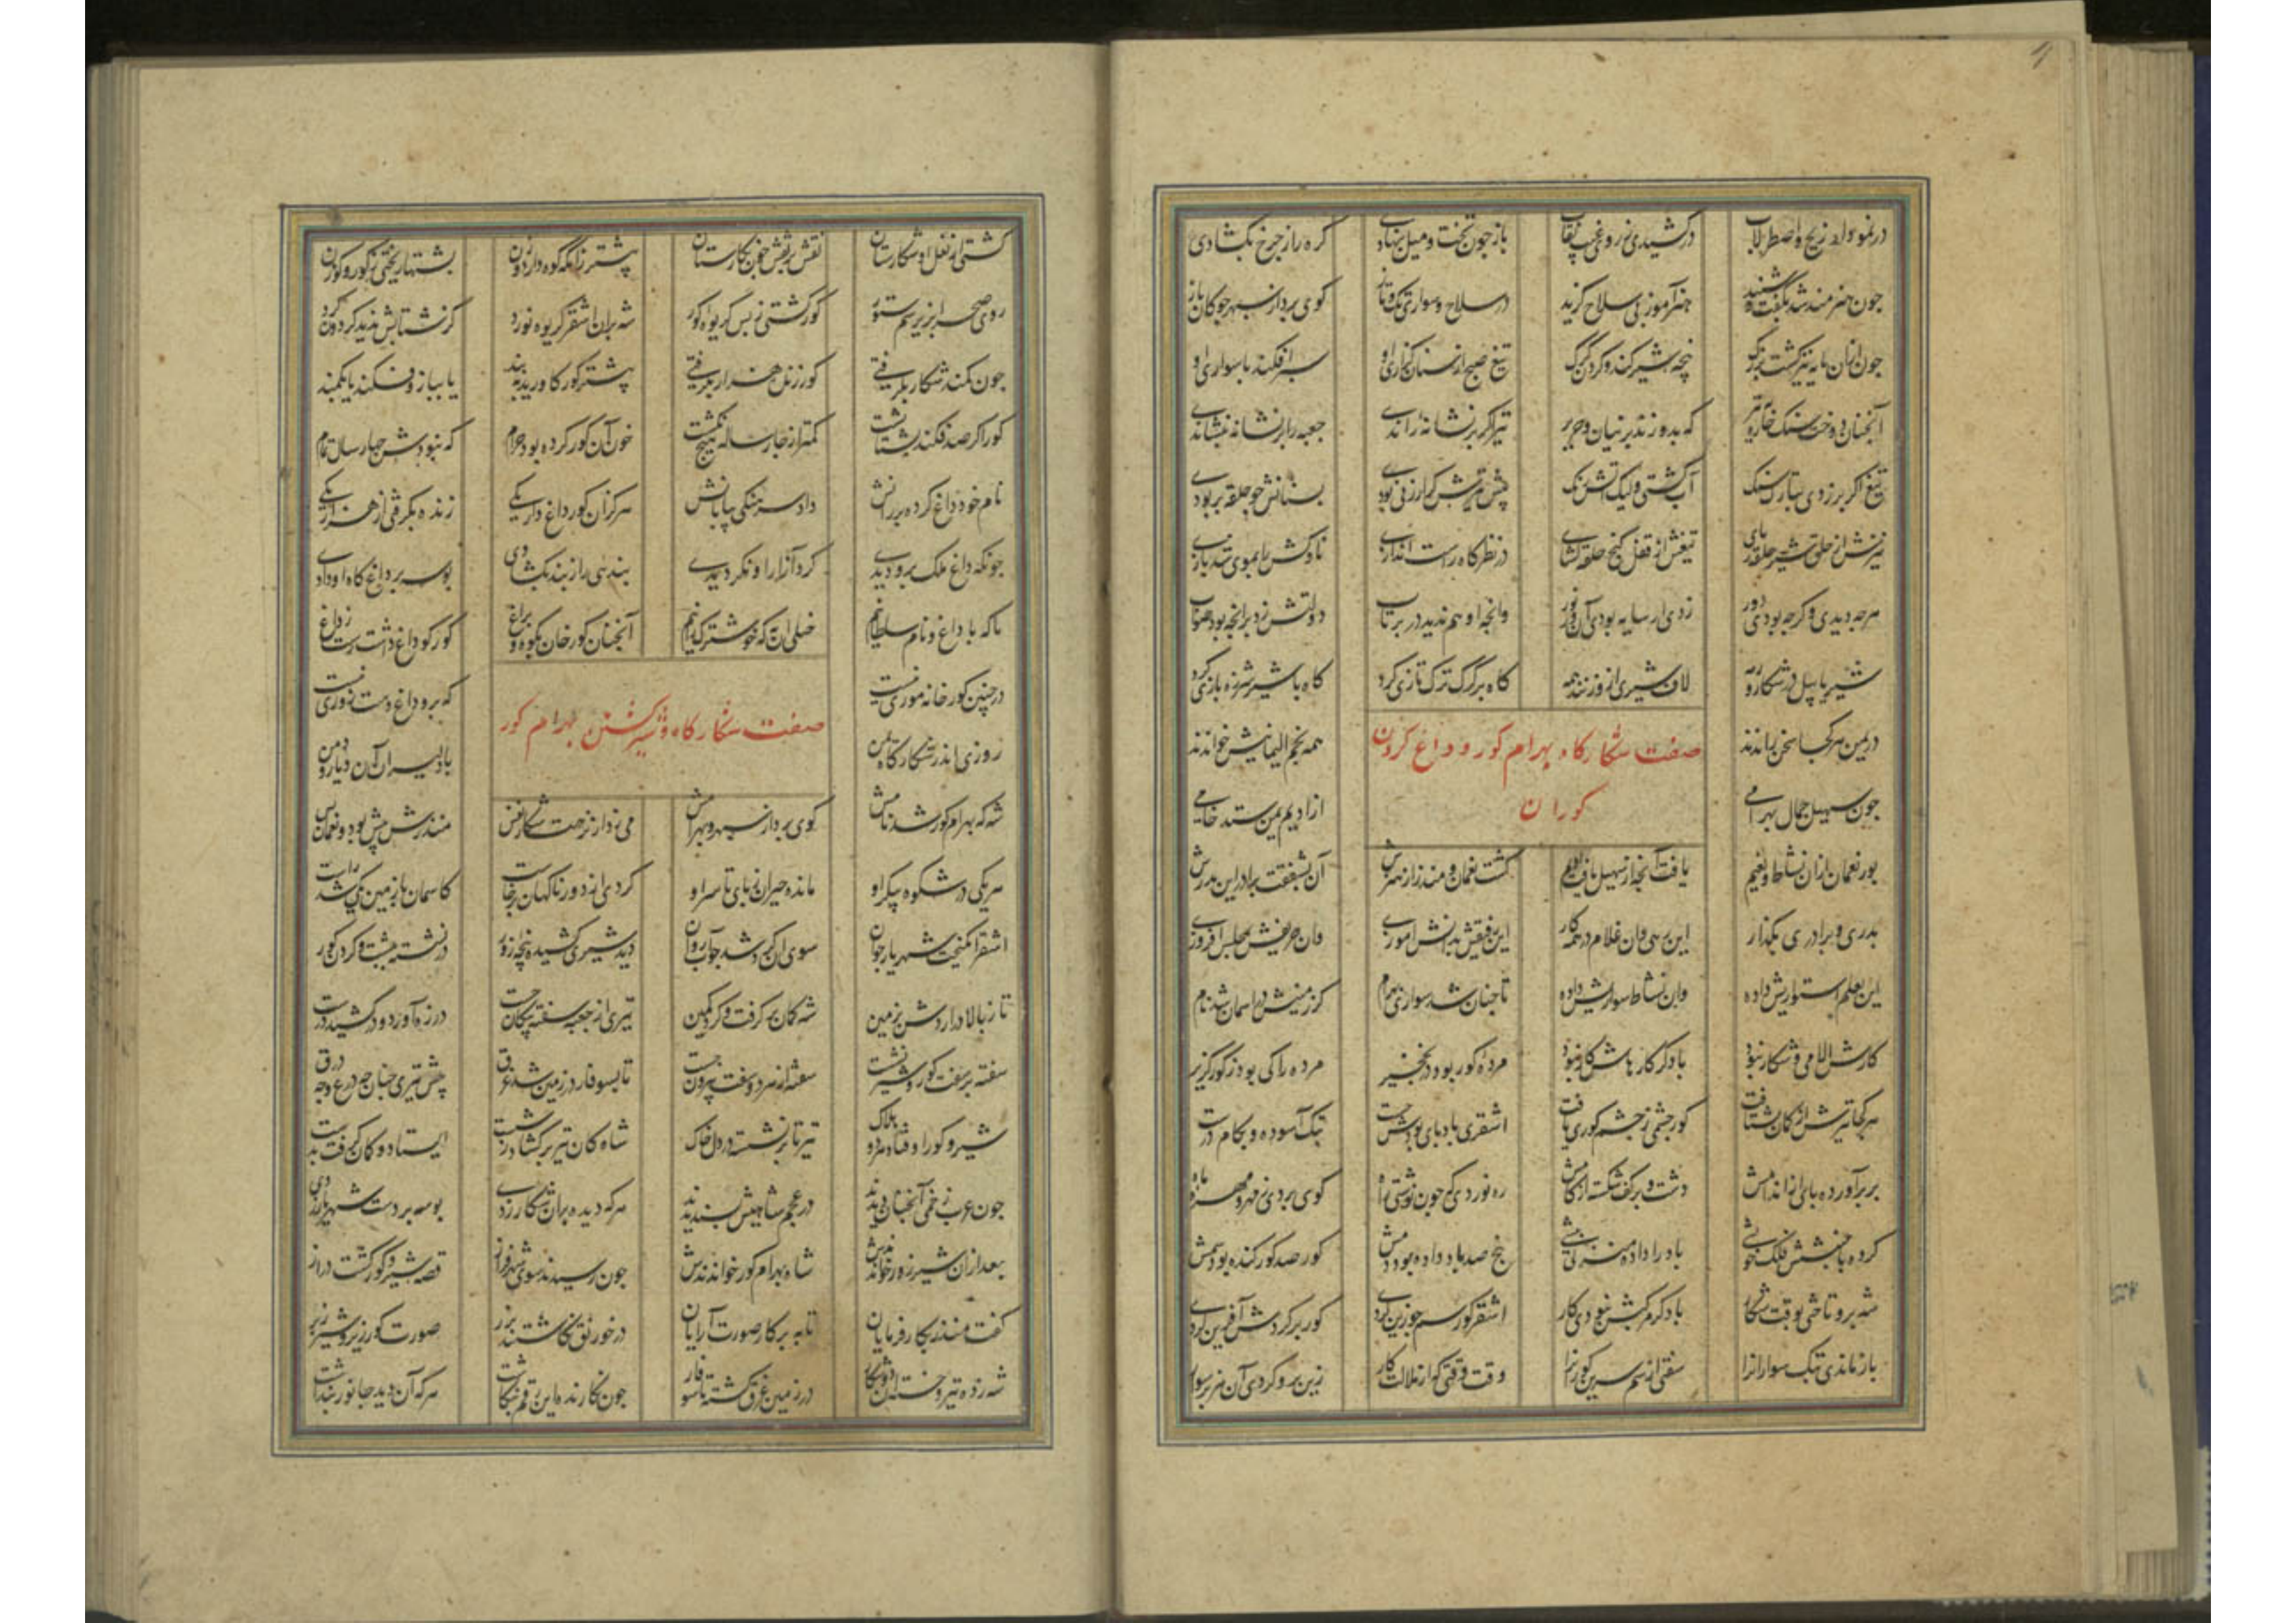 در نمودار زیج و اصطرلاب درکشیدی ز روی غیب نقاب باز چون تخت و میل بنهادی کره راز چرخ بکشادی
چون هنرمند شد بگفت و شنید هنر آموزیی سلاح گزید در سلاح و سواری و تک و تاز گوی برد از سپهر چوگان باز
چون ازان مایه نیز گشت بزرگ پنجه شیر کند و گردن گرگ تیغ صبح از سنان گزاری او سپر افکند با سواری او
آنچنان دوخت سنگ خاره بتیر که بدوزند پرنیان و حریر تیر اگر بر نشانه راندی جعبه را بر نشانه بنشاندی
تیغ اگر بر زدی بتارک سنگ آب گشتی ولیک آتش رنگ پیش تیرش گر ارزنی بودی بسنانش چو حلقه بربودی
تیزیش از حلق شیر حلقه ربای تیغش از قفل گنج حلقه گشای در نظرگاه راست اندازی ناوکش را بموی شد بازی
هر چه دیدی و گرچه بودی دور زدی ار سایه بودی آن ور نور وانچه او هم ندید در پرتاب دولتش زد بر آنچه بود صواب
شیر با پیل در شکار رمه لاف شیری ازو زنند همه گاه بر گرگ ترک تازی کرد گاه با شیر شرزه بازی کرد
در یمن هر کجا سخن راندند همه نجم الیمانیش خواندند
صفت شکارگاه بهرام گور و داغ کردن
گوران
چون سهیل جمال بهرامی از ادیم یمن ستد خامی
پور نعمان ازان نشاط و نعیم یافت آنچه از سهیل یافت ادیم گشت نعمان و منذر از هنرش آن بشفقت برادر این پدرش
پدری و برادری بگذار این رهی وان غلام در همه کار این رفیقش بدانش آموزی وان حریفش بمجلس افروزی
این بعلم استواریش داده وان نشاط سواریش داده تا چنان شد سواری بهرام کز زمینش در آسمان شد نام
کارش الا می و شکار نبود با دگر کارهاش کار نبود مرده گور بود در نخجیر مرده را کی بود ز گور گزیر
هر کجا تیرش از کمان بشتافت گور چشمی ز چشم گوری یافت اشقری باد پای بودش چست بتک آسوده و بگام درست
پر برآورده پای از اندامش دشت و بر کف شکسته از گامش ره نوردی که چون نوشتی راه گوی بردی ز مهر و مهره ز ماه
کرده با جنبش فلک خویشی باد را داده منزلی پیشی پنج صد باد داده بود دمش گور صد گور کنده بود سمش
شه برو تاختی بوقت شکار با دگر مرکبش نبودی کار اشقر گور سم چو زین کردی گور بر گردش آفرین کردی
باز ماندی بتک سواران را سفتی از سم سرین گوران را وقت وقتی که از ملالت کار زین برو کردی آن هنر پرسوار
گشتی از نعل او شکارستان نقش بر نقش چون نگارستان پیشتر زانکه کوه دارد وزن پشتها ریختی ز گور و گوزن
روی صحرا بزیر سم ستور گور گشتی ز بس گریوه گور شه بران اشقر گریوه نورد کز شتابش ندید گردون گرد
چون کمند شکار بگرفتی گور زنده هزار بگرفتی پیشتر گور کاوریدی به بند یا ببازو فکند یا بکمند
گور اگر صد فکند پشتاپشت کمتر از چار ساله هیچ نکشت خون آن گور کرده بود حرام که نبودش چهار سال تمام
نام خود داغ کرده بر رانش داد سرهنگی بیابانش هر کزان گور داغ دار یکی زنده بگرفتی از هزار یکی
چونکه داغ ملک برو دیدی گرد آزار او نگردیدی بندی را ز بند بگشادی بوسه بر داغ گاه او دادی
ما که با داغ و نام سلطانیم ختلی آن به که خوشترک رانیم آنچنان گورخان بکوه و براغ گور کو داغ داشت رست ز داغ
در چنین گورخانه موری نیست که برو داغ دست زوری نیست
صفت شکارگاه و شیر کشتن بهرام گور
روزی اندر شکارگاه یمن با دلیران آن دیار و دمن
شه که بهرام گور شد نامش گوی برد از سپهر و بهرامش می زد از نزهت شکار نفس منذرش پیش بود و نعمان پس
هر یکی در شکوه پیکر او مانده حیران ز پای تا سر او گردی از دور ناگهان برخاست کاسمان با زمین یکی شد راست
اشقر انگیخت شهریار جوان سوی آن گرد شد چو آب روان دید شیری کشیده پنجه زور در نشسته بپشت و گردن گور
تا ز بالا در آردش بزمین شه کمان بر گرفت و کرد کمین تیری از جعبه سفته پیکان جست در زه آورد و در کشید درست
سفته بر سفت گور و شیر نشست سفت و از هر دو سفت بیرون جست تا بسوفار در زمین شد غرق پیش تیری چنان چه درع و چه درق
شیر و گور اوفتاد و مرد هلاک تیر تا پر نشسته در دل خاک شاه کان تیر بر گشاد ز شست ایستاد و کمان گرفت بدست
چون عرب زخمی آنچنان دیدند در عجم شاهیش پسندیدند هر که دیده بران شکار زدی بوسه بر دست شهریار زدی
بعد ازان شیر زور خواندندش شاه بهرام گور خواندندش چون رسیدند سوی شهر فراز قصه شیر و گور گشت دراز
گفت منذر بکار فرمایان تا به پرگار صورت آرایان در خورنق نگاشتند بزر صورت گور زیر و شیر زبر
شه زده تیر و جسته زان دو شکار در زمین غرق گشته تا سوفار چون نگارنده این رقم بنگاشت هر که آن دید جانور پنداشت